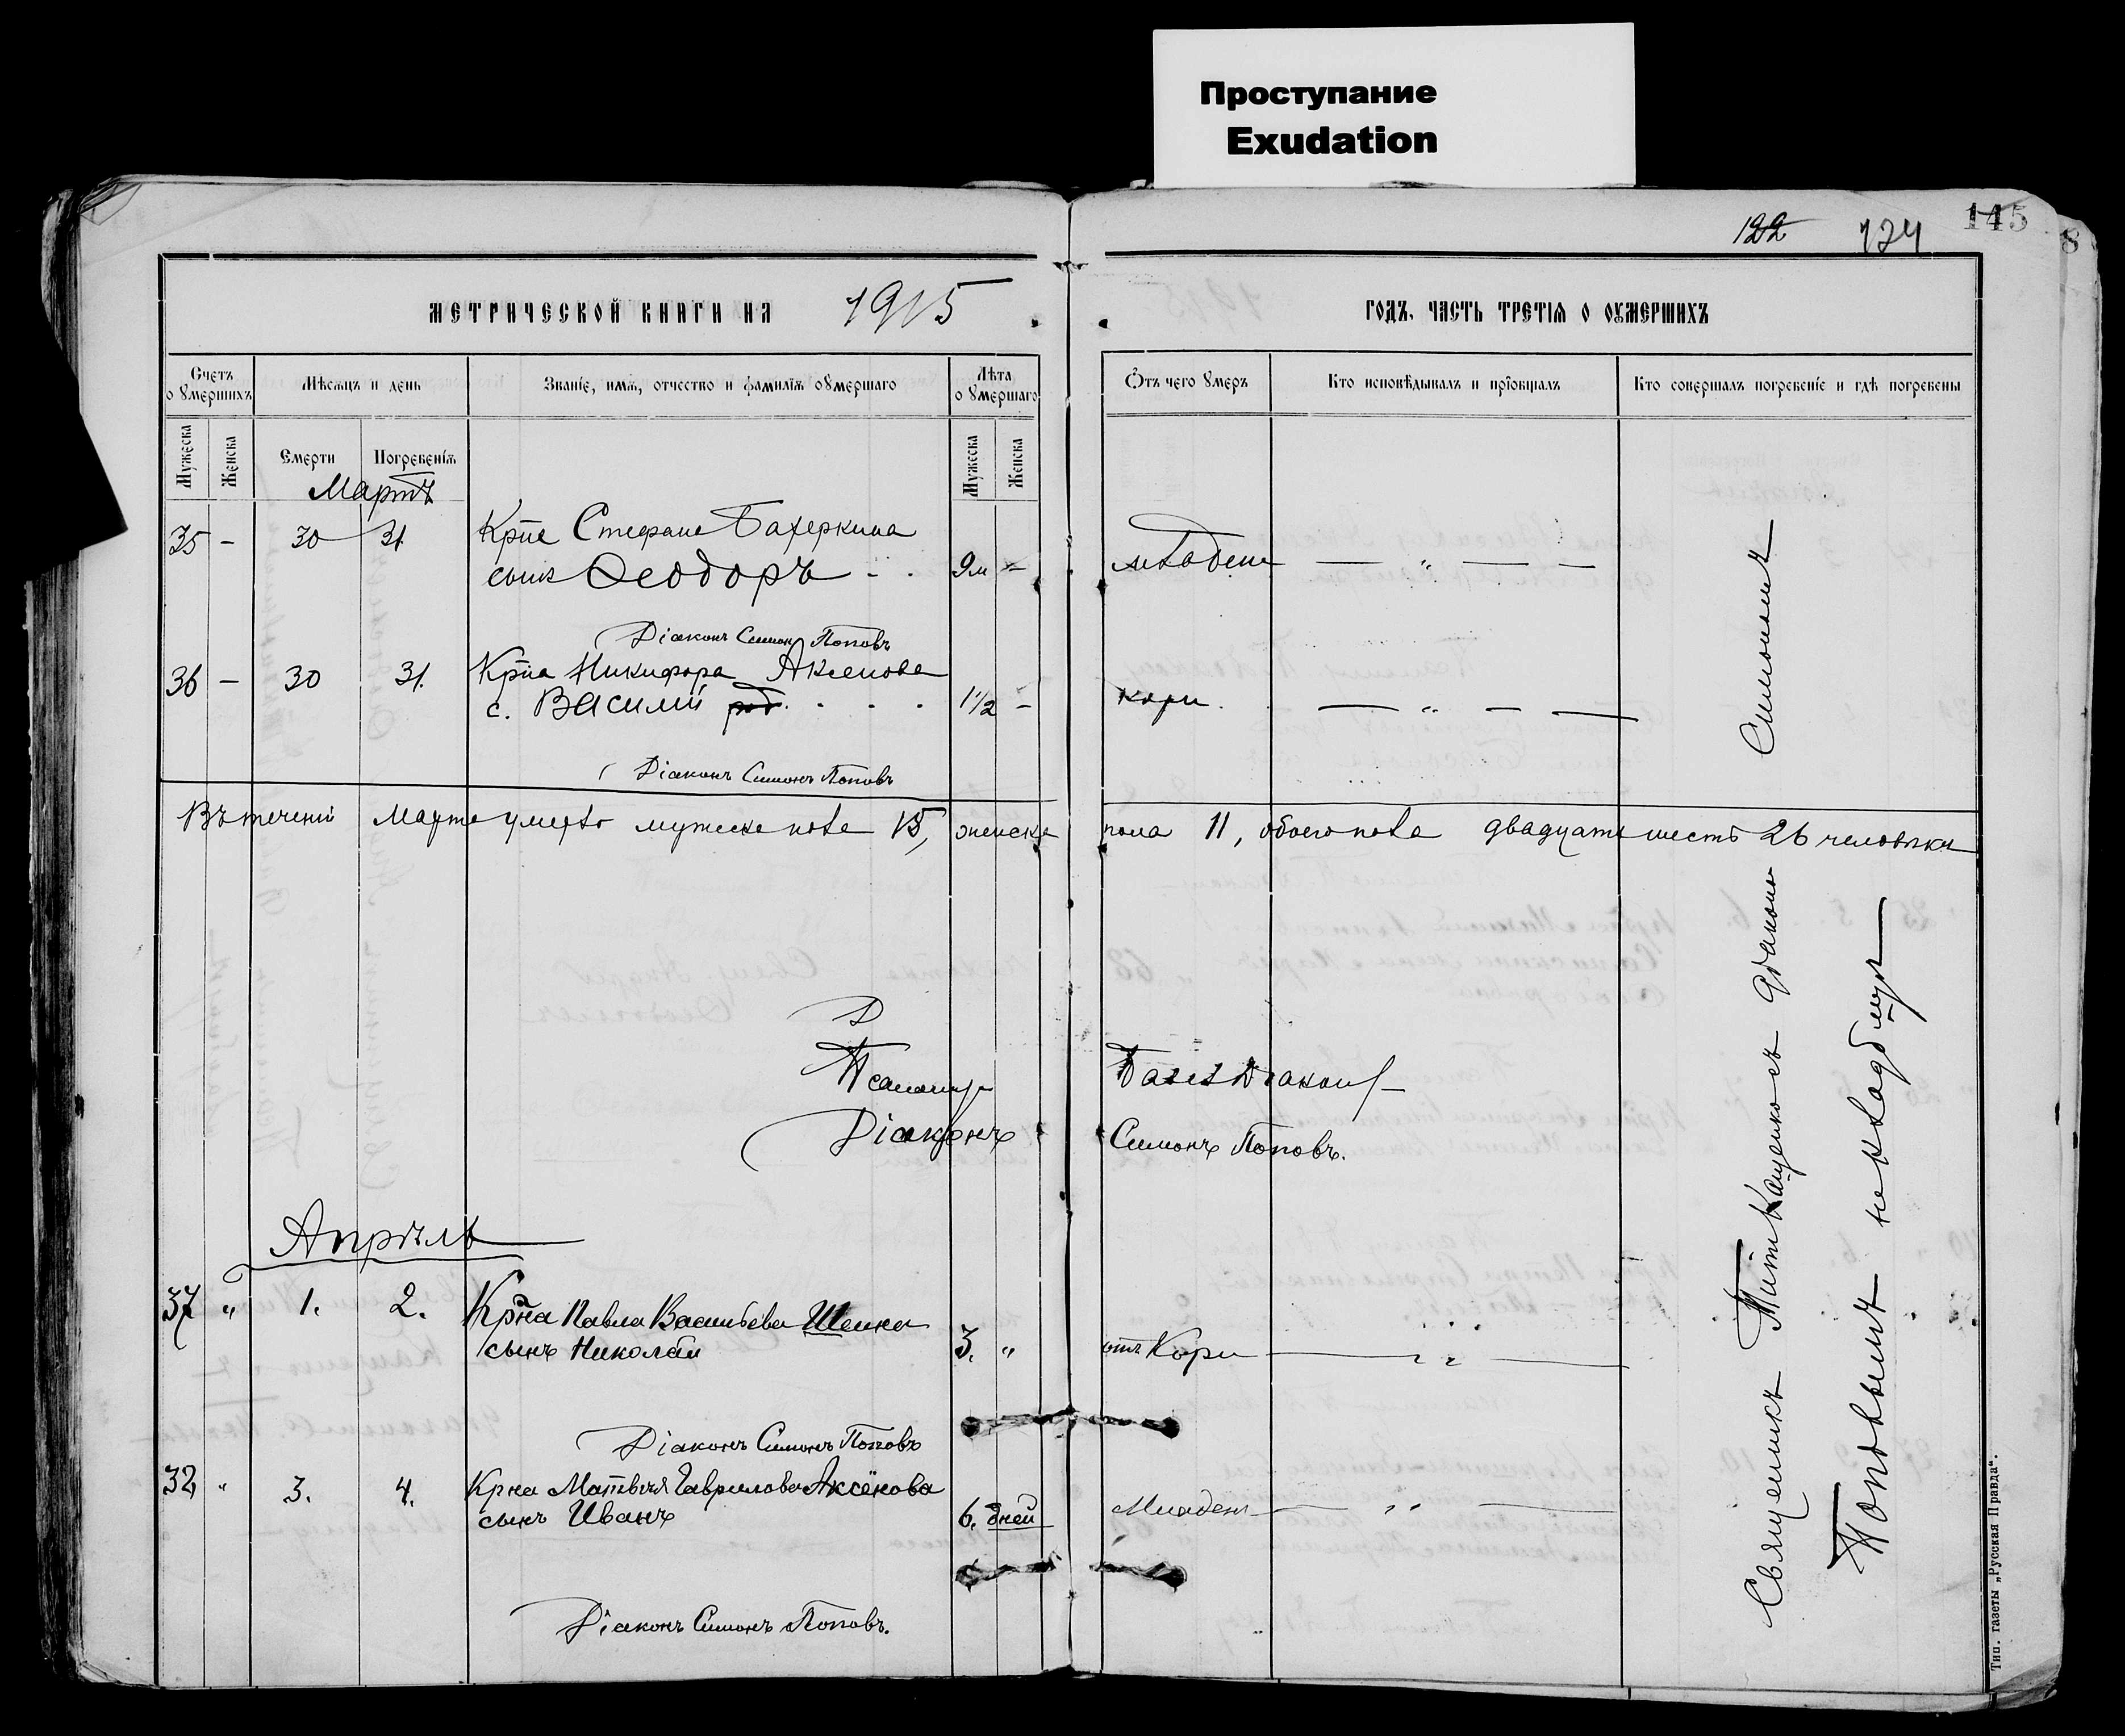 Проступание
Exudation
122 124 145
8
МЕТРИЧЕСКОЙ КНИГИ НА 1915 ГОДЪ, ЧАСТЬ ТРЕТІЯ О ОУМЕРШИХЪ
Счетъ о умершихъ
Мѣсяцъ и день
Званіе, имя, отчество и фамилія оумершаго
Лѣта оумершаго
Отъ чего умеръ
Кто исповѣдывалъ и пріобщалъ
Кто совершалъ погребеніе и гдѣ погребены
Мужеска
Женска
Смерти
Погребенія
Мужеска
Женска
Мартъ
35 - 30 31 Крне Стефане Бахеркина
сынъ Ѳеодоръ - - 9м - младен — " — —
Діаконъ Симон Поповъ
36 - 30 31. Крна Никифора Аксенова
с. Василій 1 1/2 - кори. — " — —
Діаконъ Симонъ Поповъ
Въ теченіи Марта умерло мужеска пола 15, женска пола 11, обоего пола двадцать шесть 26 человѣкъ
Діаконъ Симонъ Поповъ.
Апрѣль
37 " 1. 2. Крна Павла Васильева Шенка
сынъ Николай 3. " отъ Кори — " —
Діаконъ Симонъ Поповъ
32 " 3. 4. Крна Матвѣя Гаврилова Аксёнова
сынъ Иванъ 6. дней Младен — " —
Діаконъ Симонъ Поповъ.
Симономъ
Священникъ Титъ Кащенко съ діакономъ
Поповымъ на кладбищѣ
Тип. газеты „Русская Правда“.